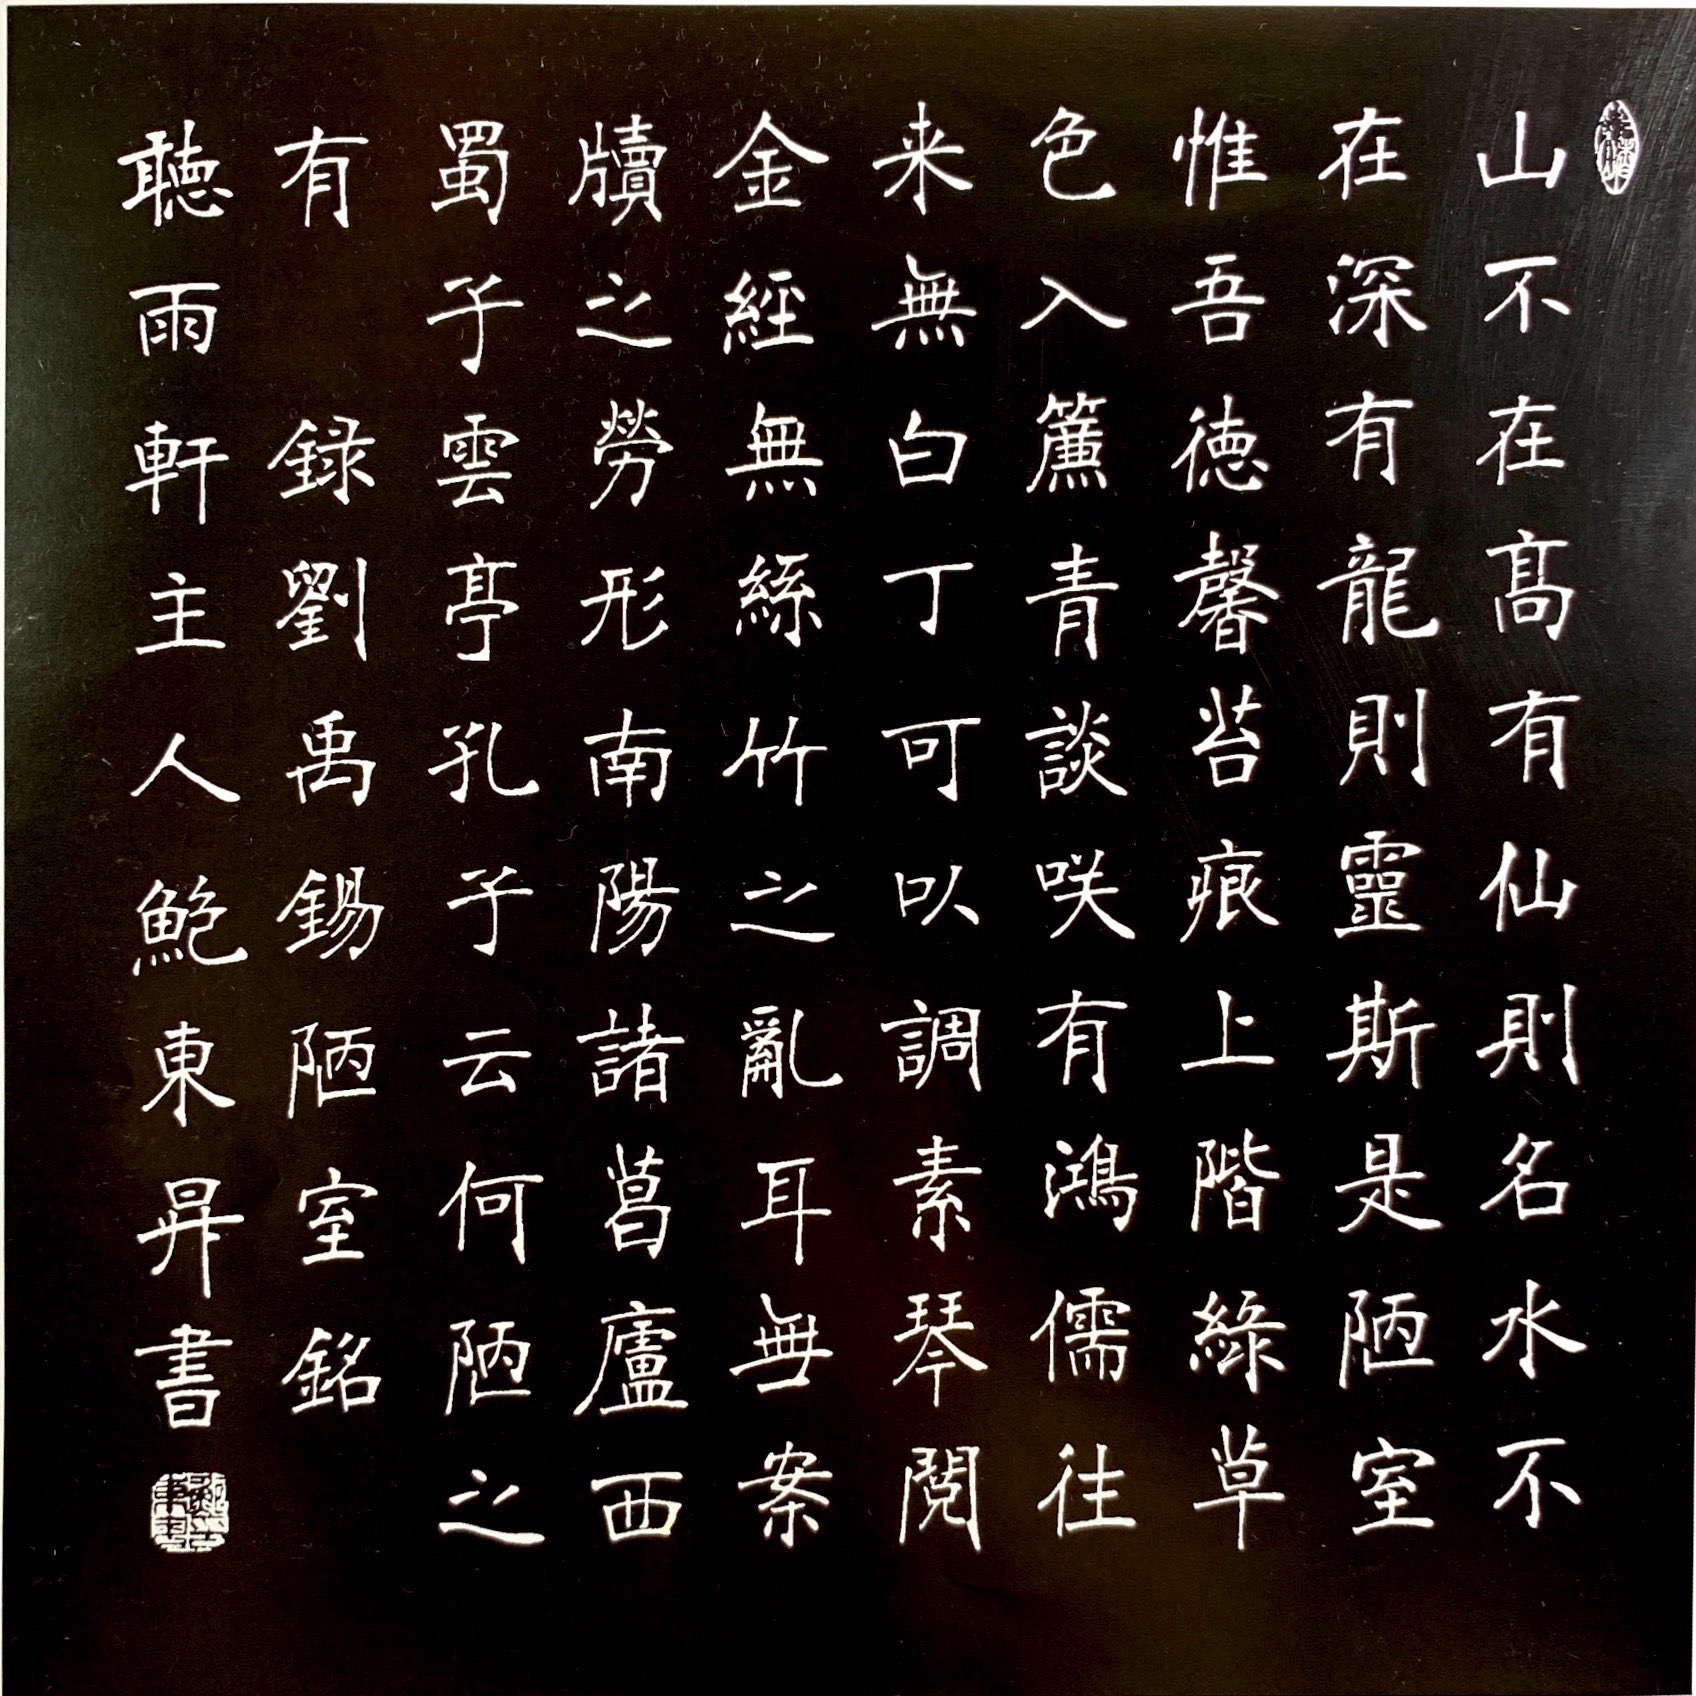 山不在髙有仙則名水不
在深有龍則靈斯是陋室
惟吾徳馨苔痕上階綠草
色入簾青談咲有鴻儒往
来無白丁可以調素琴閱
金經無絲竹之亂耳無案
牘之勞形南陽諸葛廬西
蜀子雲亭孔子云何陋之
有 録劉禹錫陋室銘
聽雨軒主人鮑東昇書